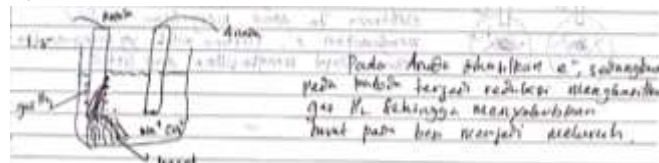 Anoda
1,5
gas H₂
Na⁺ Cl⁻
karat
Pada Anoda dihasilkan e⁻, sedangkan
pada katoda terjadi reduksi menghasilkan
gas H₂ sehingga menyebabkan
karat pada besi menjadi meluruh.